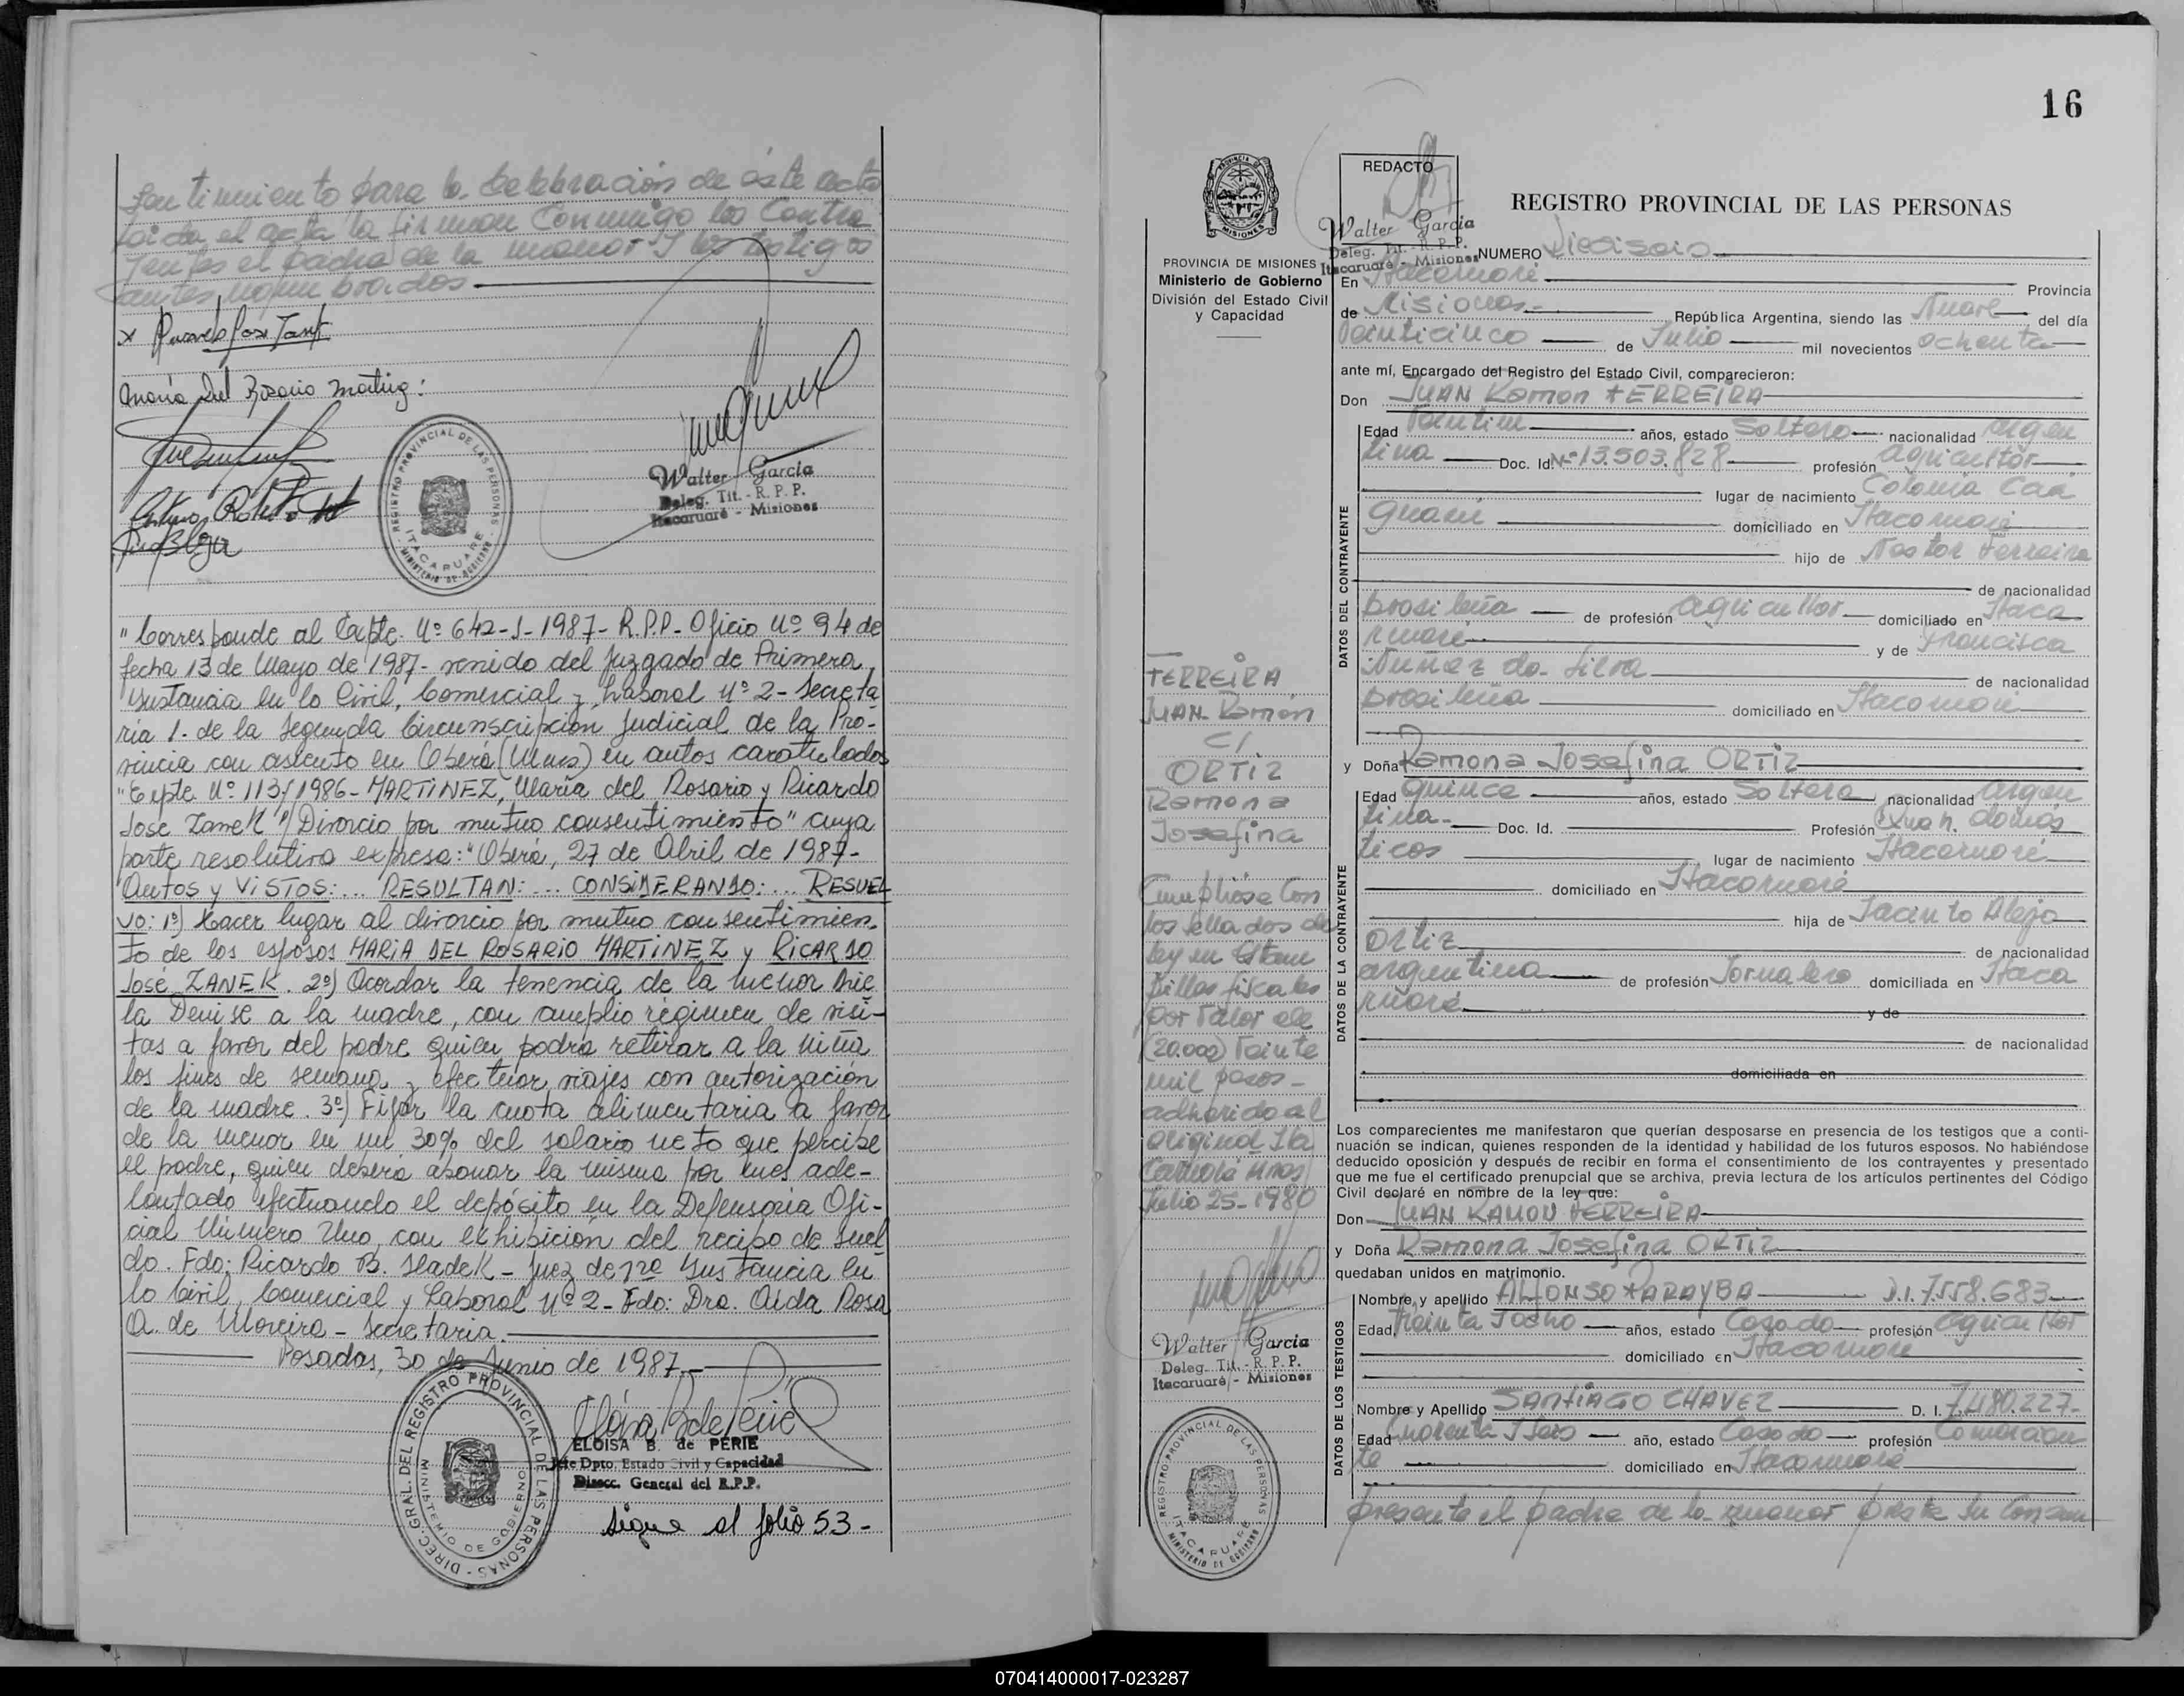 sentimiento para la Celebración de éste acto
leida el acta la firman Conmigo los Contra
yentes el padre de la menor y los testigos
antes nombrados
x Ricardo José Zanek
María Del Rosario Martinez
REGISTRO PROVINCIAL DE LAS PERSONAS
ITACARUARE
MINISTERIO DE GOBIERNO
Walter Garcia
Deleg. Tit. - R. P. P.
Itacaruaré - Misiones
"Corresponde al Expte. Nº 642-J-1987- R.P.P- Oficio Nº 94 de
fecha 13 de Mayo de 1987- venido del Juzgado de Primera
Instancia en lo Civil, Comercial y Laboral Nº 2- Secreta
ria 1. de la Segunda Circunscripción Judicial de la Pro-
vincia con asiento en Oberá (Mnes) en autos caratulados
"Expte Nº 113/1986- MARTINEZ, María del Rosario y Ricardo
José Zanek s/Divorcio por mutuo consentimiento" cuya
parte resolutiva expresa: "Oberá, 27 de Abril de 1987-
Autos y VISTOS:... RESULTAN:... CONSIDERANDO:... RESUEL
VO: 1º) Hacer lugar al divorcio por mutuo consentimien-
to de los esposos MARIA DEL ROSARIO MARTINEZ y RICARDO
José ZANEK. 2º) Acordar la tenencia de la menor
la Denise a la madre, con amplio régimen de visi-
tas a favor del padre quien podrá retirar a la niña
los fines de semana y efectuar viajes con autorización
de la madre. 3º) Fijar la cuota alimentaria a favor
de la menor en un 30% del salario neto que percibe
el padre, quien deberá abonar la misma por mes ade-
lantado efectuando el depósito en la Defensoria Ofi-
cial Número Uno, con exhibición del recibo de suel
do. Fdo: Ricardo B. Sladek - Juez de 1ra Instancia en
lo Civil, Comercial y Laboral Nº 2- Fdo: Dra. Aida Rosa
A. de Moreira - Secretaria.
Posadas, 30 de Junio de 1987.
DIREC. GRAL. DEL REGISTRO PROVINCIAL DE LAS PERSONAS
MINISTERIO DE GOBIERNO
ELOISA B. de PERIE
Jefe Dpto. Estado Civil y Capacidad
Direcc. General del R.P.P.
Sigue al folio 53-
16
PROVINCIA DE MISIONES
REDACTO
REGISTRO PROVINCIAL DE LAS PERSONAS
Walter Garcia
Deleg. Tit. - R. P. P.
Itacaruaré - Misiones
PROVINCIA DE MISIONES
Ministerio de Gobierno
División del Estado Civil
y Capacidad
NUMERO Dieciseis
En Itacaruaré Provincia
de Misiones República Argentina, siendo las Nueve del día
Veinticinco de Julio mil novecientos ochenta
ante mí, Encargado del Registro del Estado Civil, comparecieron:
Don JUAN Ramon FERREIRA
DATOS DEL CONTRAYENTE
Edad Veintiun años, estado Soltero nacionalidad Argen
tina Doc. Id. Nº 13.503.828 profesión agricultor
lugar de nacimiento Colonia Caá
Guaní domiciliado en Itacaruaré
hijo de Nestor Ferreira
de nacionalidad
brasileña de profesión agricultor domiciliado en Itaca
ruaré y de Francisca
Nuñez da Silva de nacionalidad
brasileña domiciliado en Itacaruaré
y Doña Ramona Josefina ORTIZ
DATOS DE LA CONTRAYENTE
Edad Quince años, estado Soltera nacionalidad Argen
tina Doc. Id. Profesión Queh. domés
ticos lugar de nacimiento Itacaruaré
domiciliado en Itacaruaré
hija de Jacinto Alejo
Ortiz de nacionalidad
argentina de profesión Jornalero domiciliada en Itaca
ruaré y de
de nacionalidad
domiciliada en
Los comparecientes me manifestaron que querían desposarse en presencia de los testigos que a conti-
nuación se indican, quienes responden de la identidad y habilidad de los futuros esposos. No habiéndose
deducido oposición y después de recibir en forma el consentimiento de los contrayentes y presentado
que me fue el certificado prenupcial que se archiva, previa lectura de los artículos pertinentes del Código
Civil declaré en nombre de la ley que:
Don JUAN RAMON FERREIRA
y Doña Ramona Josefina ORTIZ
quedaban unidos en matrimonio.
DATOS DE LOS TESTIGOS
Nombre y apellido ALFONSO PARAYBA D.I. 7.558.683
Edad Treinta y ocho años, estado Casado profesión agricultor
domiciliado en Itacaruaré
Nombre y Apellido SANTIAGO CHAVEZ D. I. 7.480.227-
Edad Cuarenta y Seis año, estado Casado profesión Comercian
te domiciliado en Itacaruaré
presente el padre de la menor presta su Consen
FERREIRA
JUAN Ramón
C/
ORTIZ
Ramona
Josefina
Cumpliose Con
los sellados de
ley en Estam
pillas fiscales
por valor de
(20.000) Veinte
mil pesos-
adherido al
original Ita
caruaré Mnes
Julio 25-1980
Walter Garcia
Deleg. Tit. - R. P. P.
Itacaruaré - Misiones
REGISTRO PROVINCIAL DE LAS PERSONAS
ITACARUARE
MINISTERIO DE GOBIERNO
070414000017-023287